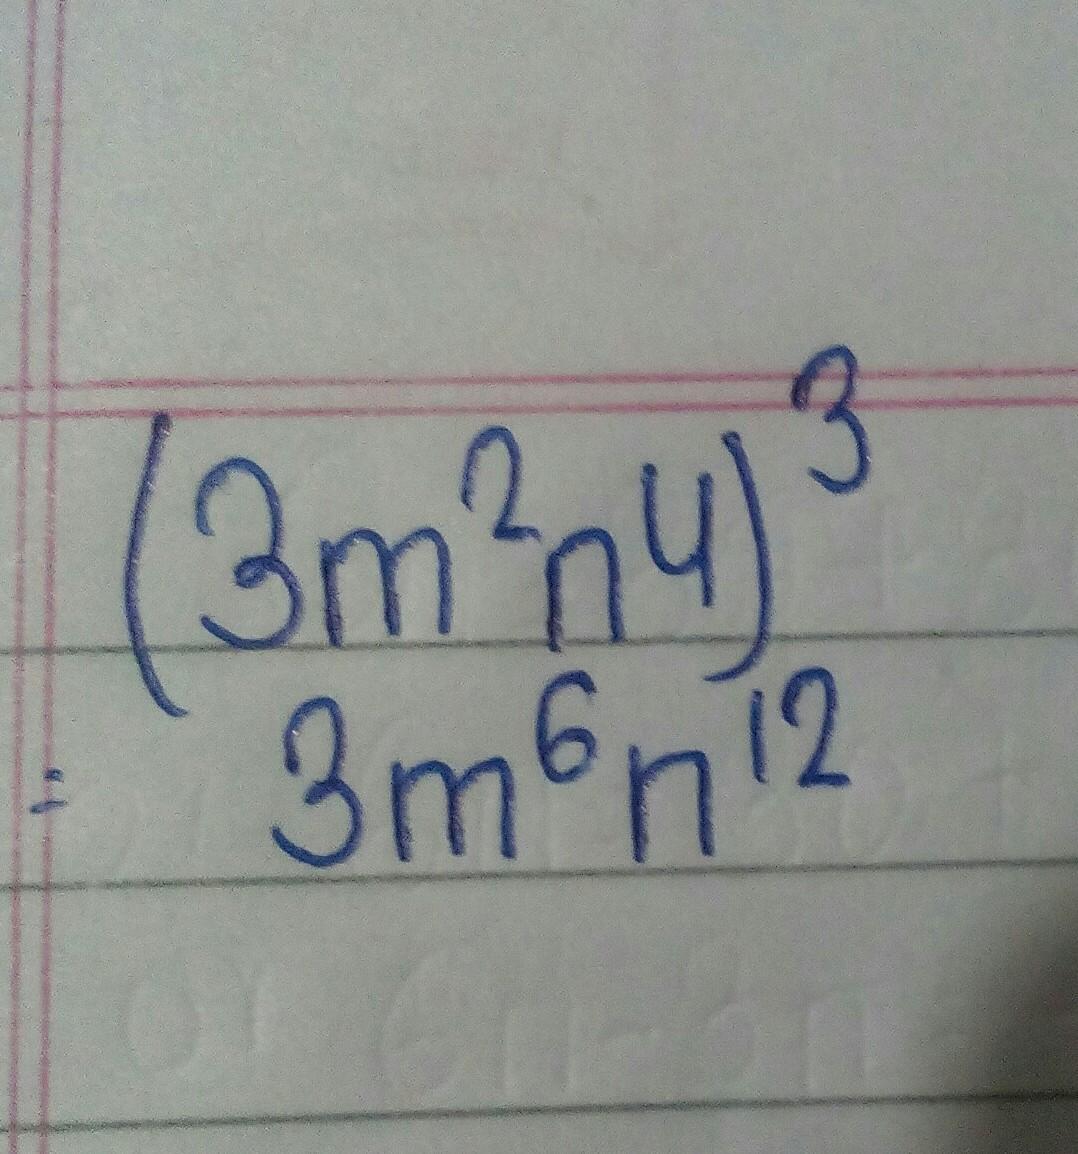 (3m²n⁴)³
= 3m⁶n¹²